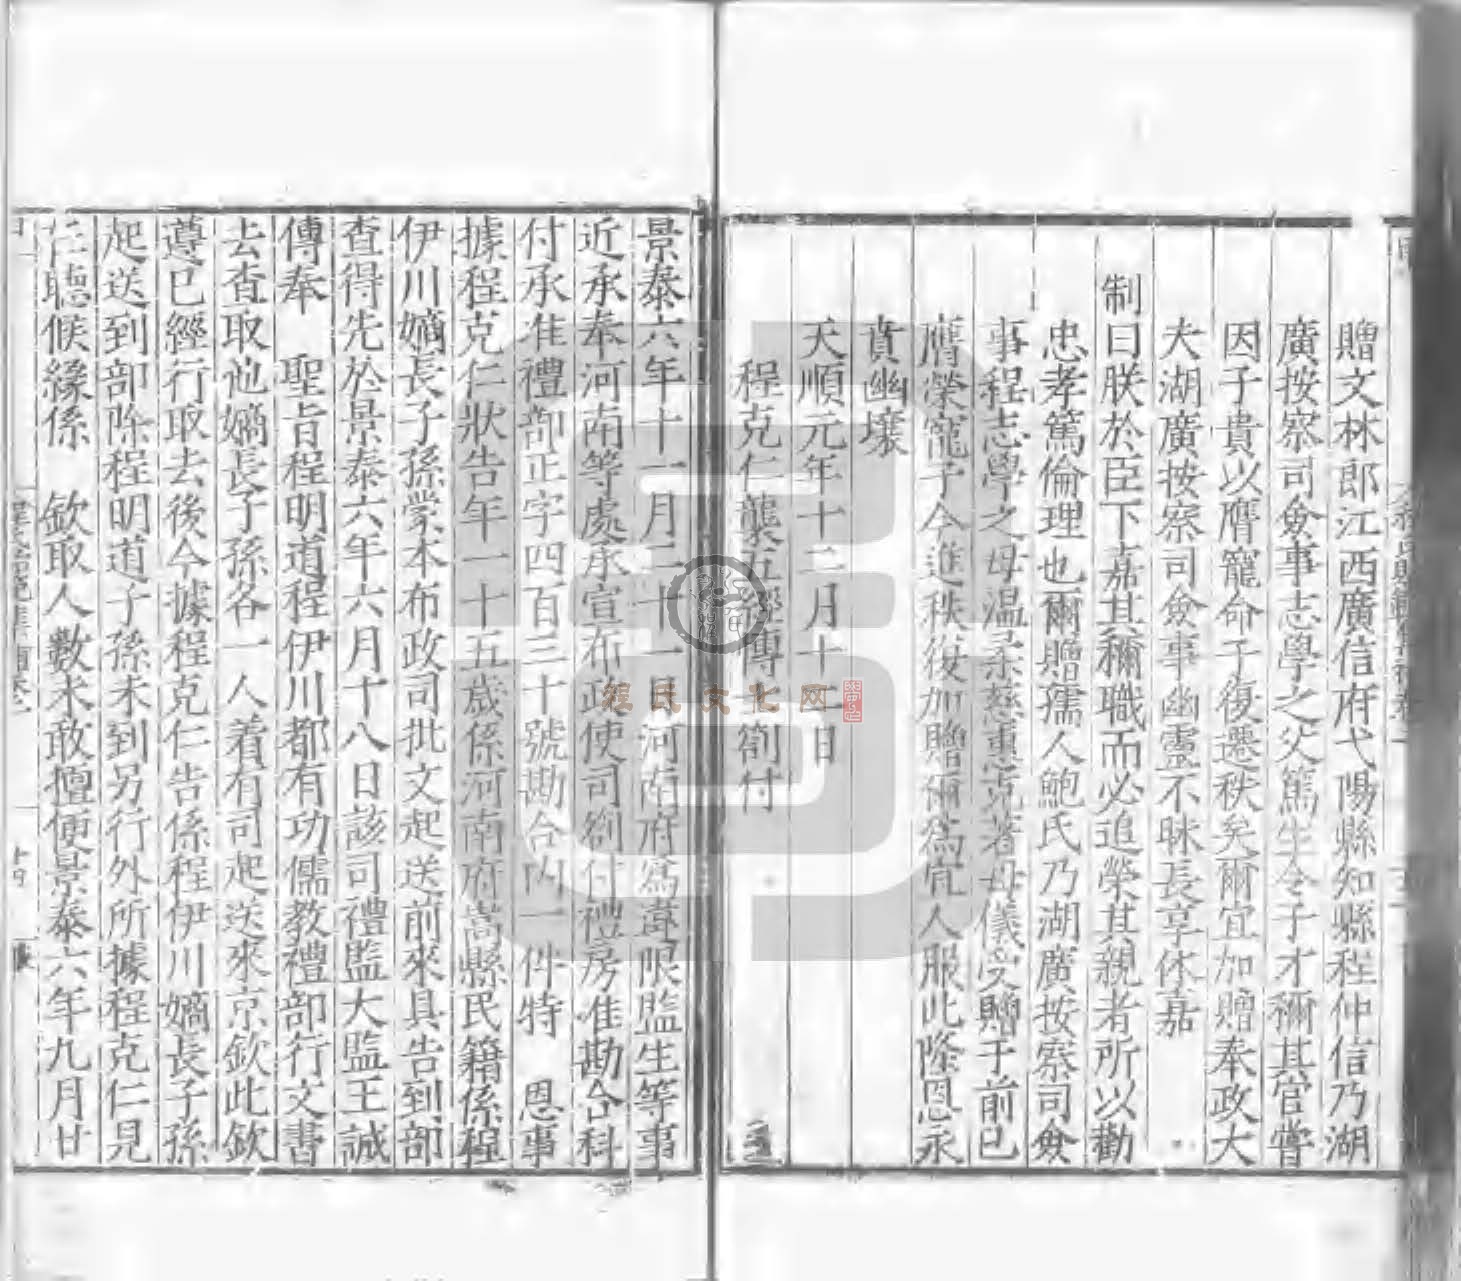 贈文林郎江西廣信府弋陽縣知縣程仲信乃湖
廣按察司僉事志學之父篤生令子才稱其官嘗
因子貴以膺寵命子復遷秩矣爾宜加贈奉政大
夫湖廣按察司僉事幽靈不昧長享休嘉
制曰朕於臣下嘉其稱職而必追榮其親者所以勸
忠孝篤倫理也爾贈孺人鮑氏乃湖廣按察司僉
事程志學之母溫柔慈惠克著母儀受贈于前已
膺榮寵子今進秩茲加贈爾爲宜人服此隆恩永
賁幽壤
天順元年十二月十二日
程克仁襲五經博士劄付
景泰六年十一月二十一日河南府爲違限監生等事
近承奉河南等處承宣布政使司劄付禮房准勘合科
付承准禮部正字四百三十號勘合內一件特 恩事
據程克仁狀告年一十五歲係河南府嵩縣民籍係程
伊川嫡長子孫蒙本布政司批文起送前來具告到部
查得先於景泰六年六月十八日該司禮監大監王誠
傳奉 聖旨程明道程伊川都有功儒教禮部行文書
去查取他嫡長子孫各一人着有司起送來京欽此欽
遵已經行取去後今據程克仁告係程伊川嫡長子孫
起送到部除程明道子孫未到另行外所據程克仁見
在聽候緣係 欽取人數未敢擅便景泰六年九月廿
程氏文化网